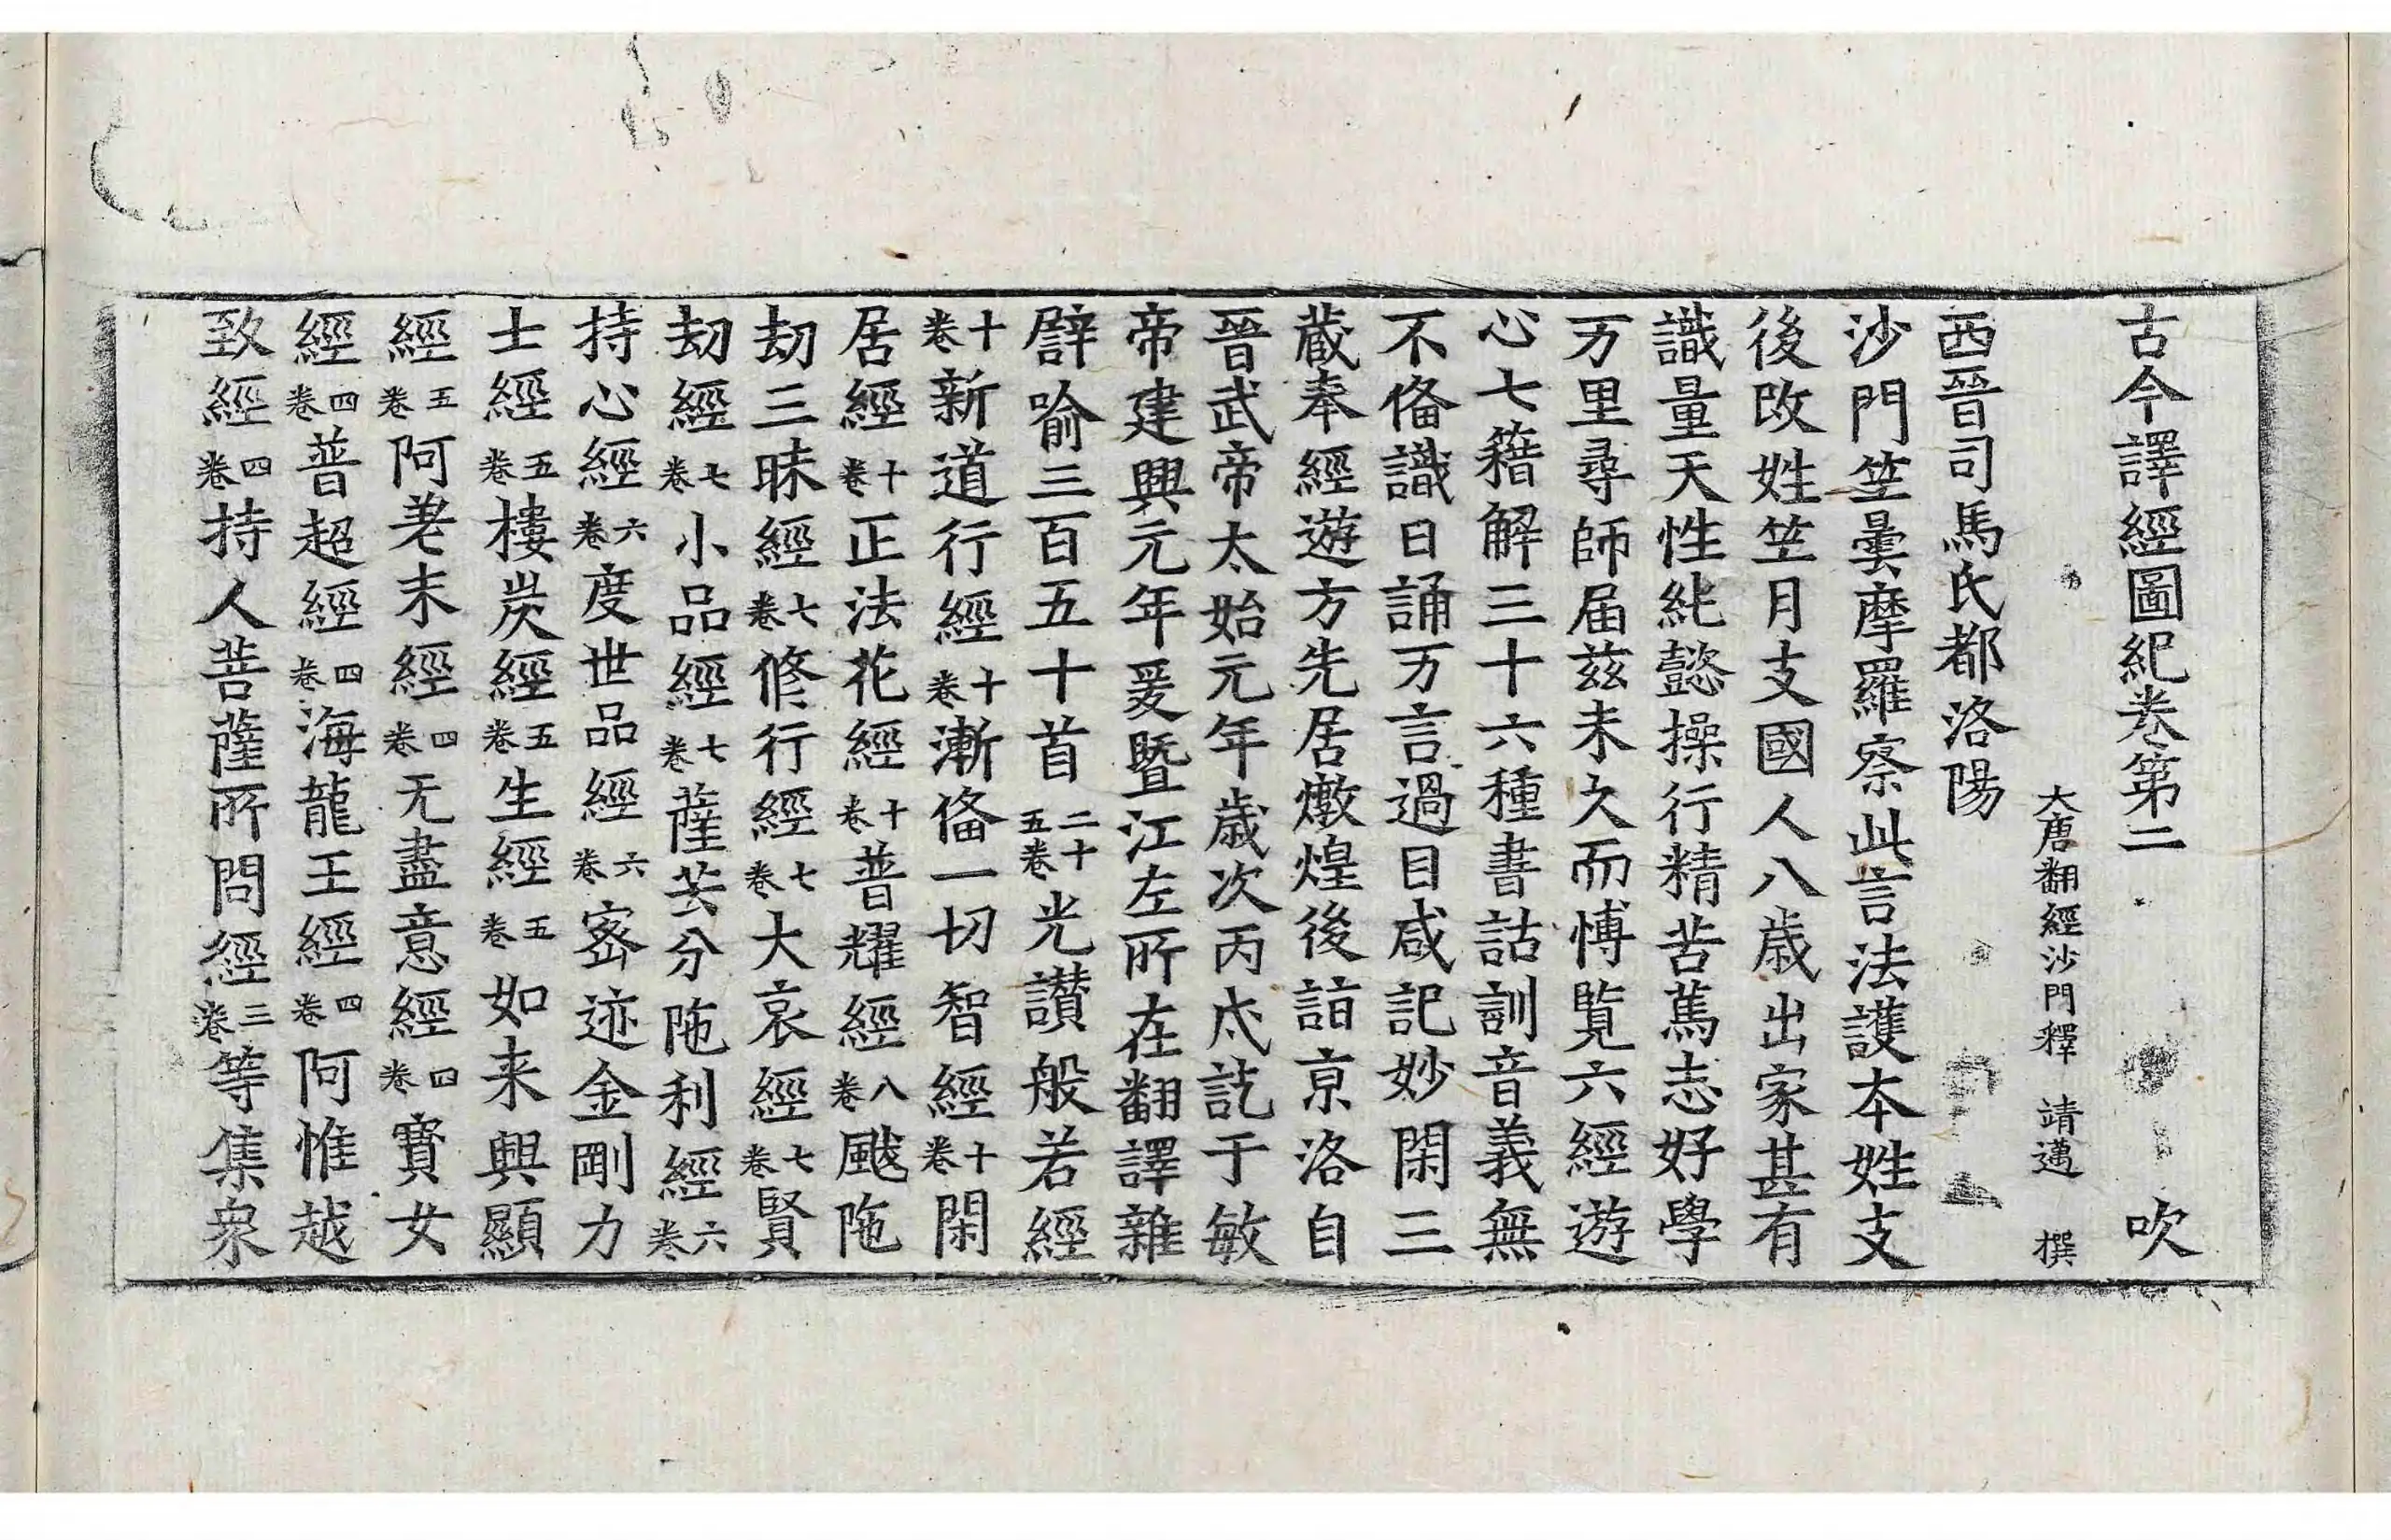 古今譯經圖紀卷第二 吹
大唐翻經沙門釋 靖邁 撰
西晉司馬氏都洛陽
沙門竺曇摩羅察此言法護本姓支
後改姓竺月支國人八歲出家甚有
識量天性純懿操行精苦篤志好學
万里尋師届兹未久而愽覧六經遊
心七籍解三十六種書詁訓音義無
不俻識日誦万言過目咸記妙閑三
蔵奉經遊方先居燉煌後詣京洛自
晉武帝太始元年歲次丙戌訖于敏
帝建興元年爰暨江左所在翻譯雜
譬喻三百五十首二十五卷光讃般若經
十卷新道行經十卷漸俻一切智經十卷閑
居經十卷正法花經十卷普耀經八卷颰陁
劫三昧經七卷修行經七卷大哀經七卷賢
劫經七卷小品經七卷薩芸分陁利經六卷
持心經六卷度世品經六卷密迹金剛力
士經五卷樓炭經五卷生經五卷如来興顯
經五卷阿差末經四卷无盡意經四卷寶女
經四卷普超經四卷海龍王經四卷阿惟越
致經四卷持人菩薩所問經三卷等集衆